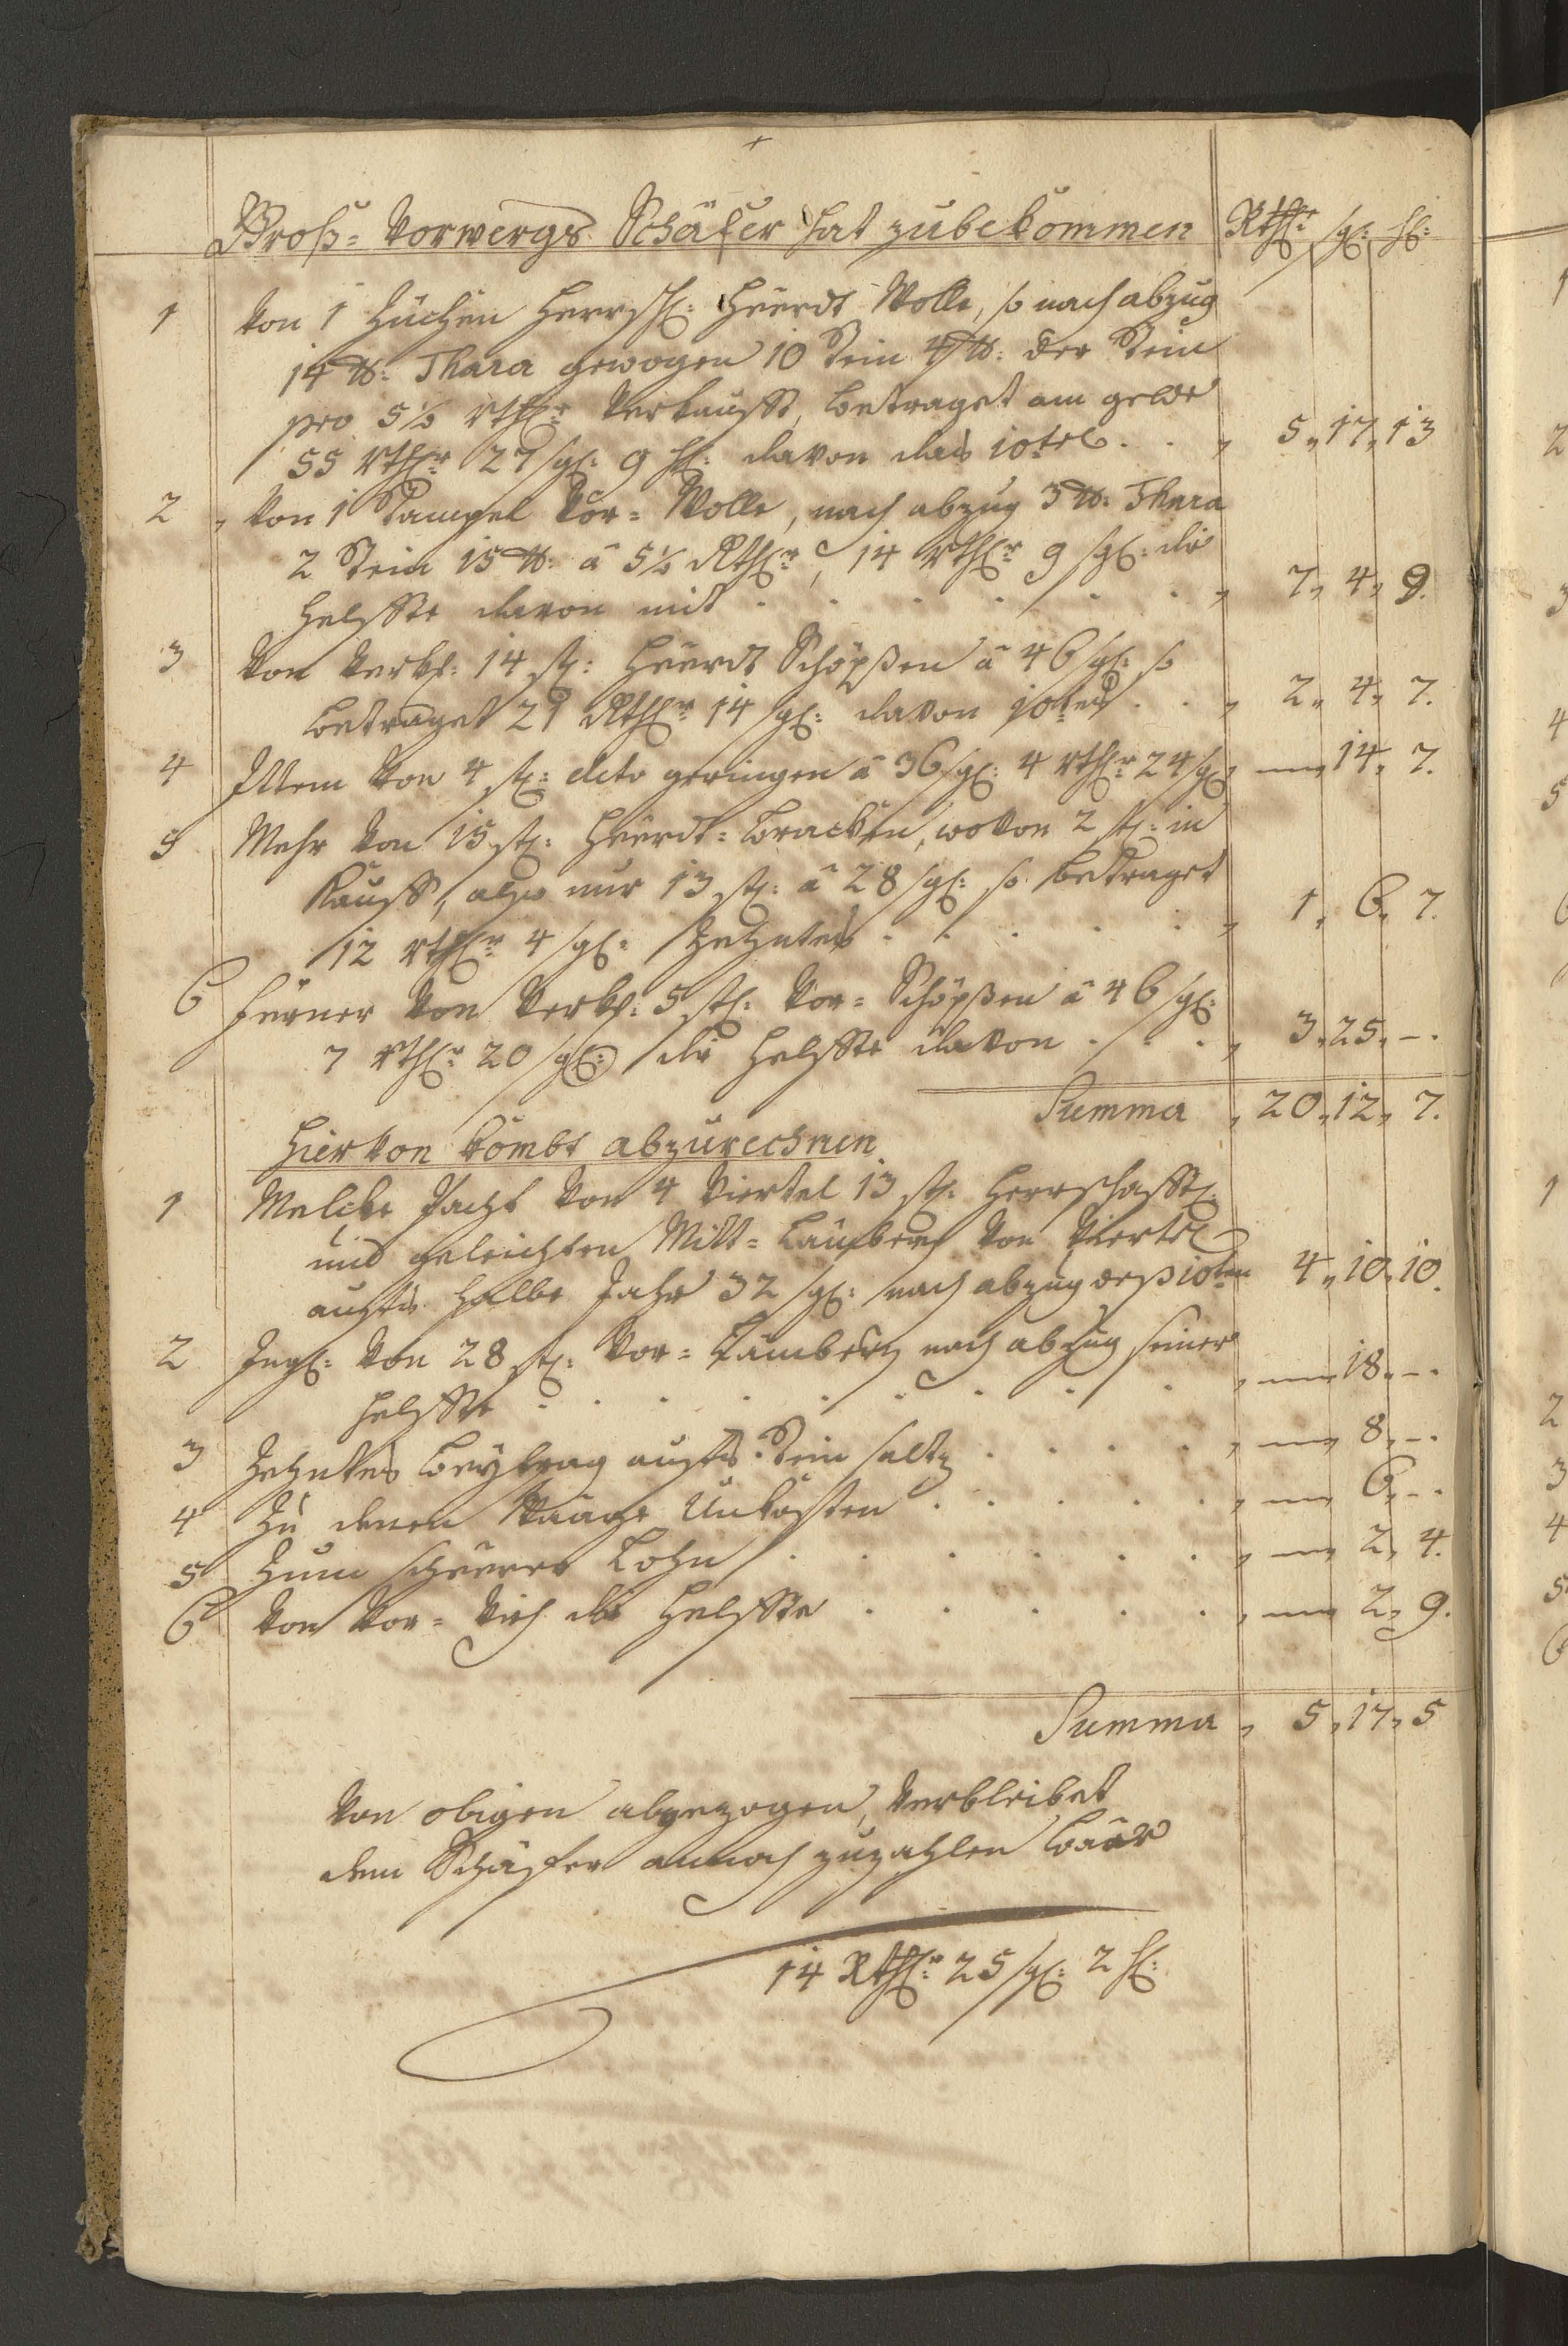 Groß-Vorwergs Schäfer hat zubekommen Rthlr: sgl: hl:
1 Von 1 Züchen Herrschl: Heerdt Wolle, so nach abzug
14 ℔: Thara gewogen 10 Stein 4 ℔: der Stein
pro 5½ Rthlr Verkaufft, betraget am gelde
55 Rthlr 27 sgl: 9 hl: davon das 10tel . . „ 5„ 17„ 13
2 „ Von 1 Vor-Wolle, nach abzug 3 ℔: Thara
2 Stein 15 ℔: â 5½ Rthlr, 14 Rthlr 9 sgl: die
Helffte davon mit . . . . . . „ 7„ 4„ 9.
3 Von Verkf: 14 stl: Heerdt Schöpßen â 46 sgl: so
betraget 21 Rthlr 14 sgl: davon 10tes . . „ 2„ 4„ 7.
4 Ittem Von 4 stl: dito geringen â 36 sgl: 4 Rthlr 24 sgl „ — 14„ 7.
5 Mehr Von 15 stl: Heerdt-Bracken, wovon 2 stl: in
Kauff, also nur 13 stl: â 28 sgl: so betraget
12 Rthlr 4 sgl: Zehntes . . . . . „ 1„ 6„ 7.
6 Ferner Von Verkf: 5 stl: Vor-Schöpßen â 46 sgl:
7 Rthlr 20 sgl: die Helffte davon . . . „ 3„ 25„ –.
Summa „ 20„ 12„ 7.
Hiervon kombt abzurechnen
1 Melcke Pacht Von 4 Viertel 13 stl: Herrschafftl:
und geleichten Mitt-Lämbern Von Viertel
aufs halbe Jahr 32 sgl: nach abzug deß 10ten 4„ 10„ 10.
2 Ingl: Von 28 stl: Vor-Lämbern nach abzug seiner
Helffte . . . . . . . . „ — 18„ –.
3 Zehntes Beytrag aufs Stein saltz . . . . „ — 8„ –.
4 Zu denen Waage Unkosten . . . . . „ — 6„ –.
5 Zum scheerer Lohn . . . . . . „ — 2„ 4.
6 Von Vor-Vieh die Helffte . . . . . „ — 2„ 9.
Summa „ 5„ 17„ 5
Von obigen abgezogen, Verbleibet
dem Schäfer annoch zuzahlen baar
14 Rthlr: 25 sgl: 2 hl: